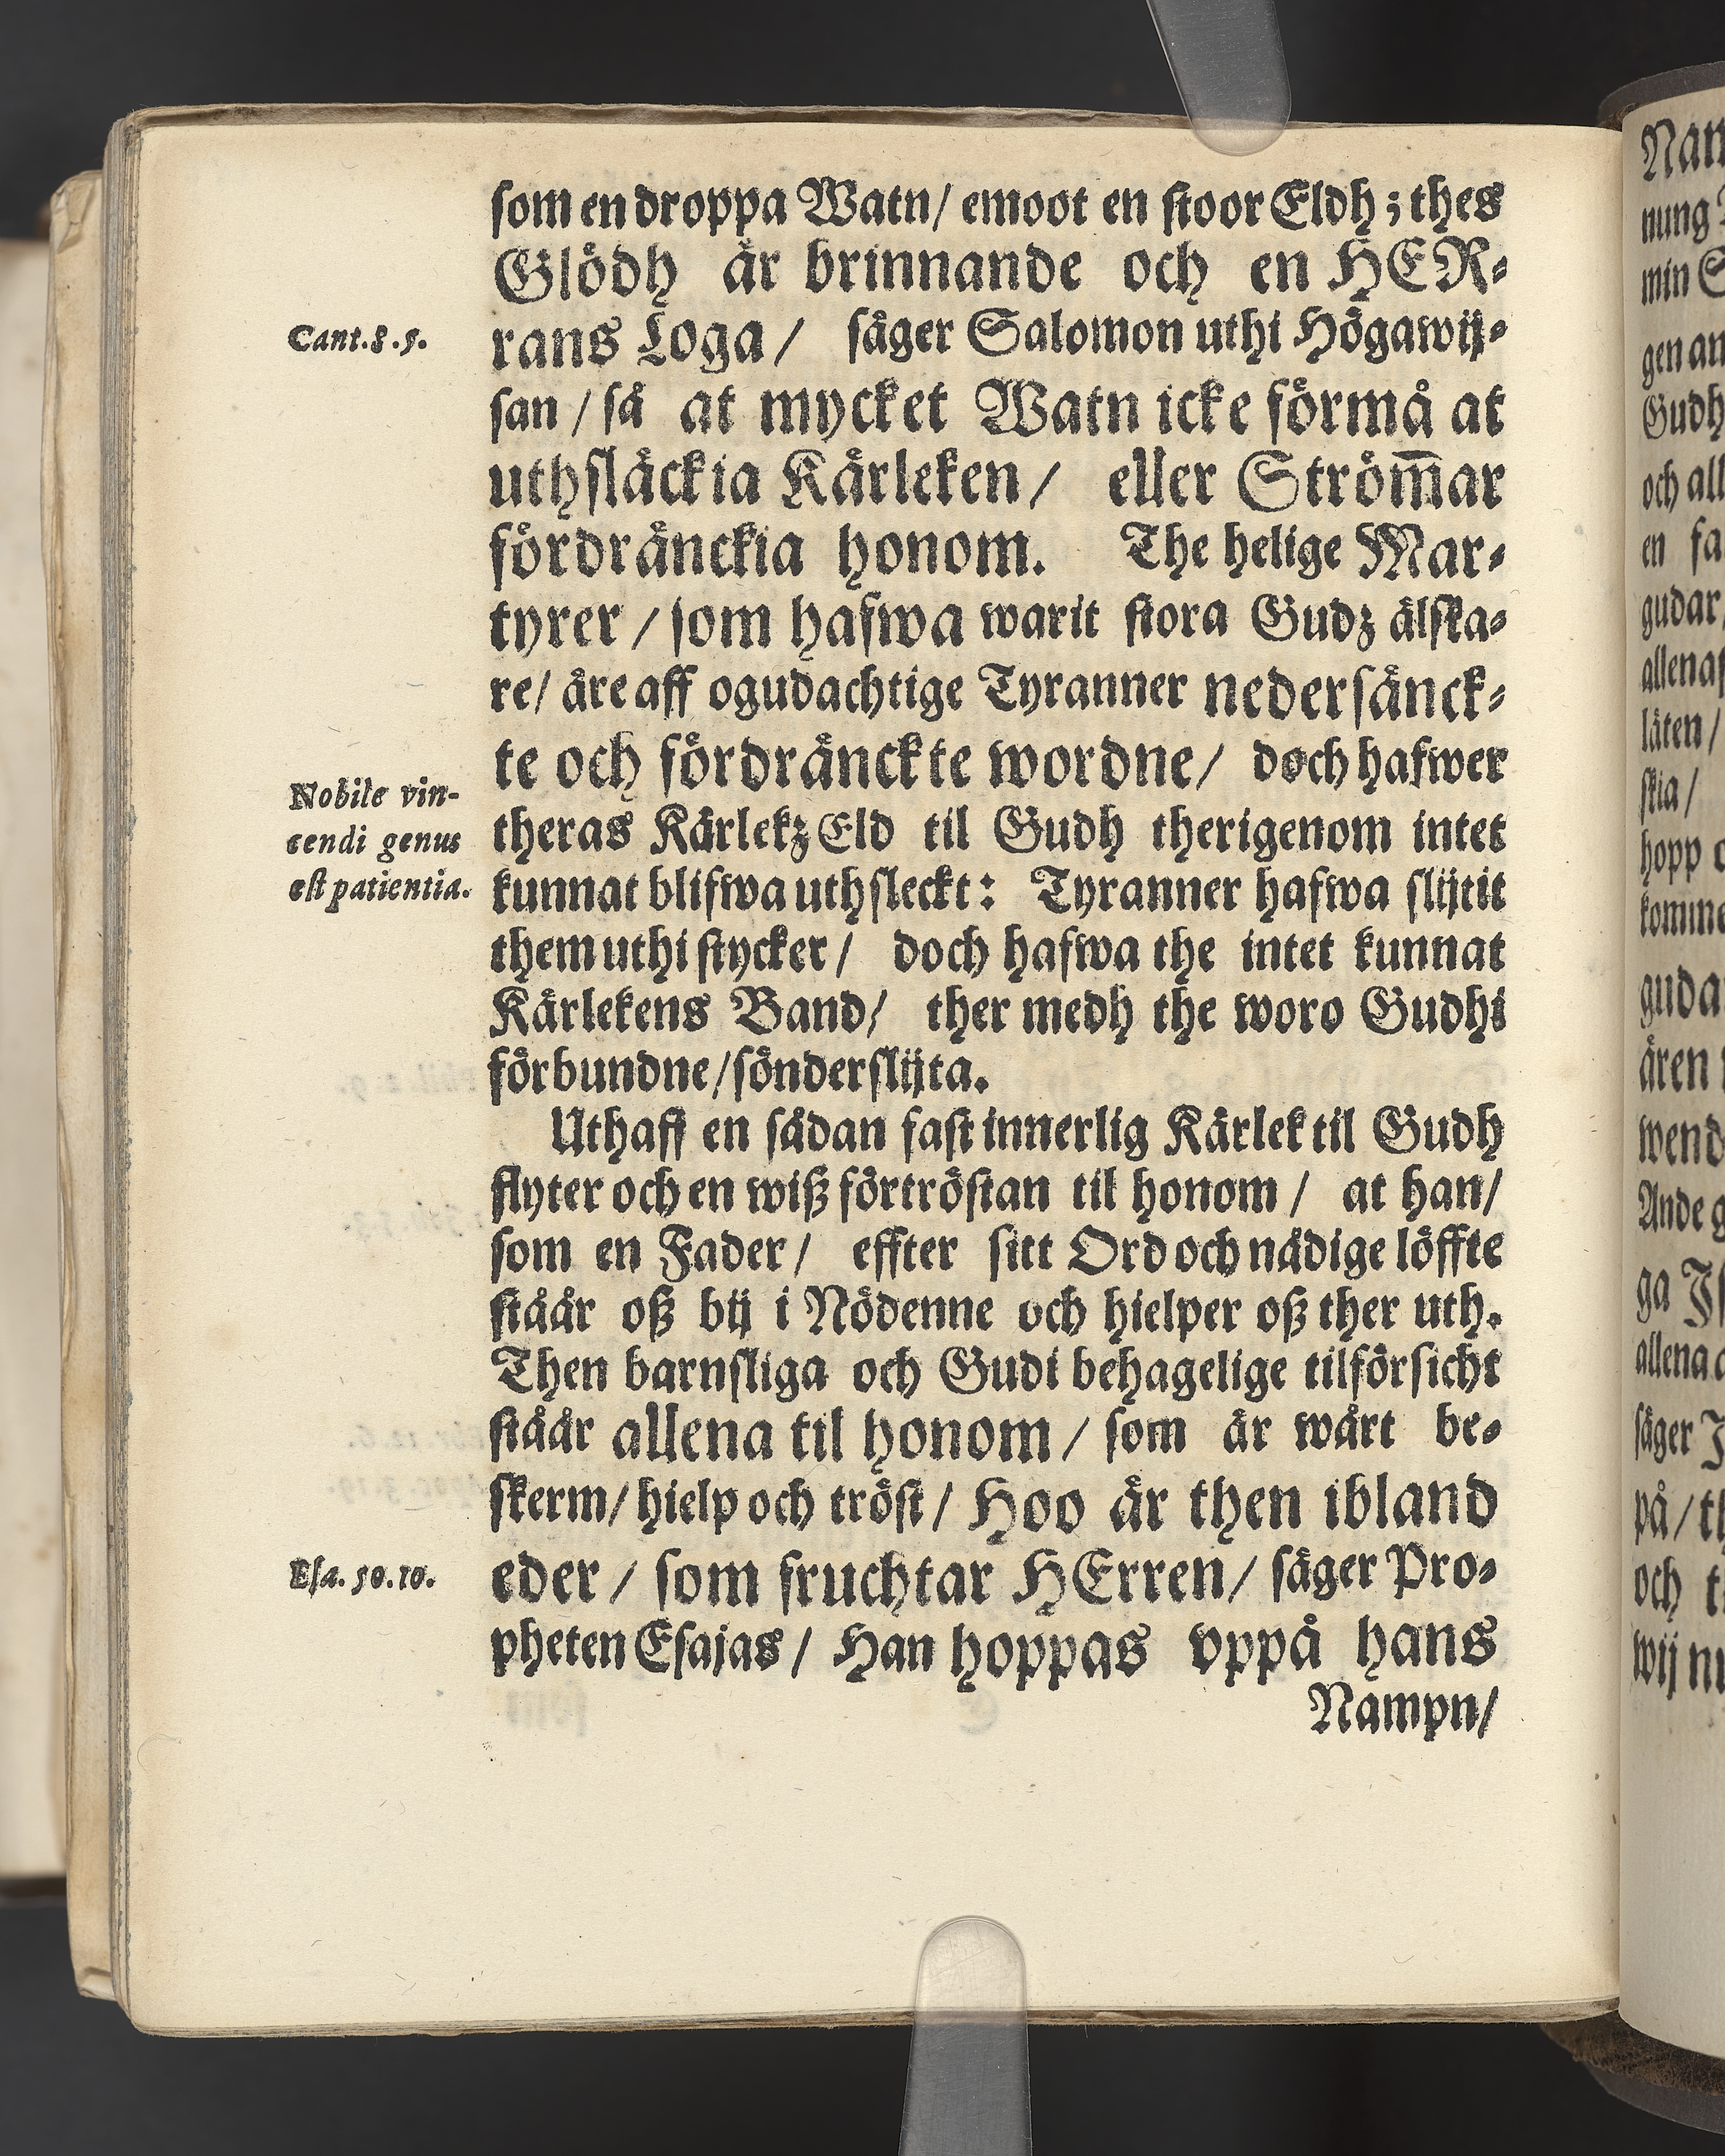 som en droppa Watn/ emoot en stoor Eldh; thes
Glödh är brinnande och en HER-
rans Loga/ säger Salomon uthi Högawij-
san/ så at mycket Watn icke förmå at
uthsläckia Kärleken/ eller Ström̅ar
fördränckia honom. The helige Mar-
tyrer/ som hafwa warit stora Gudz älska-
re/ äre aff ogudachtige Tyranner nedersänck-
te och fördränckte wordne/ doch hafwer
theras Kärlekz Eld til Gudh therigenom intet
kunnat blifwa uthsleckt: Tyranner hafwa slijtit
them uthi stycker/ doch hafwa the intet kunnat
Kärlekens Band/ ther medh the woro Gudhi
förbundne/ sönderslijta.
Uthaff en sådan fast innerlig Kärlek til Gudh
flyter och en wiß förtröstan til honom/ at han/
som en Fader/ effter sitt Ord och nådige löffte
ståår oß bij i Nödenne och hielper oß ther uth.
Then barnsliga och Gudi behagelige tilförsicht
ståår allena til honom/ som är wårt be-
skerm/ hielp och tröst/ Hoo är then ibland
eder/ som fruchtar HErren/ säger Pro-
pheten Esajas/ Han hoppas vppå hans
Nampn/
Cant. 8. 5.
Nobile vin-
cendi genus
est patientia.
Esa. 50. 10.
nung
min
gen
Gudh
och all
en
gudar/
läten/
skia/
hopp
ären
Ande
ga
allena
säger
på/
och
wij